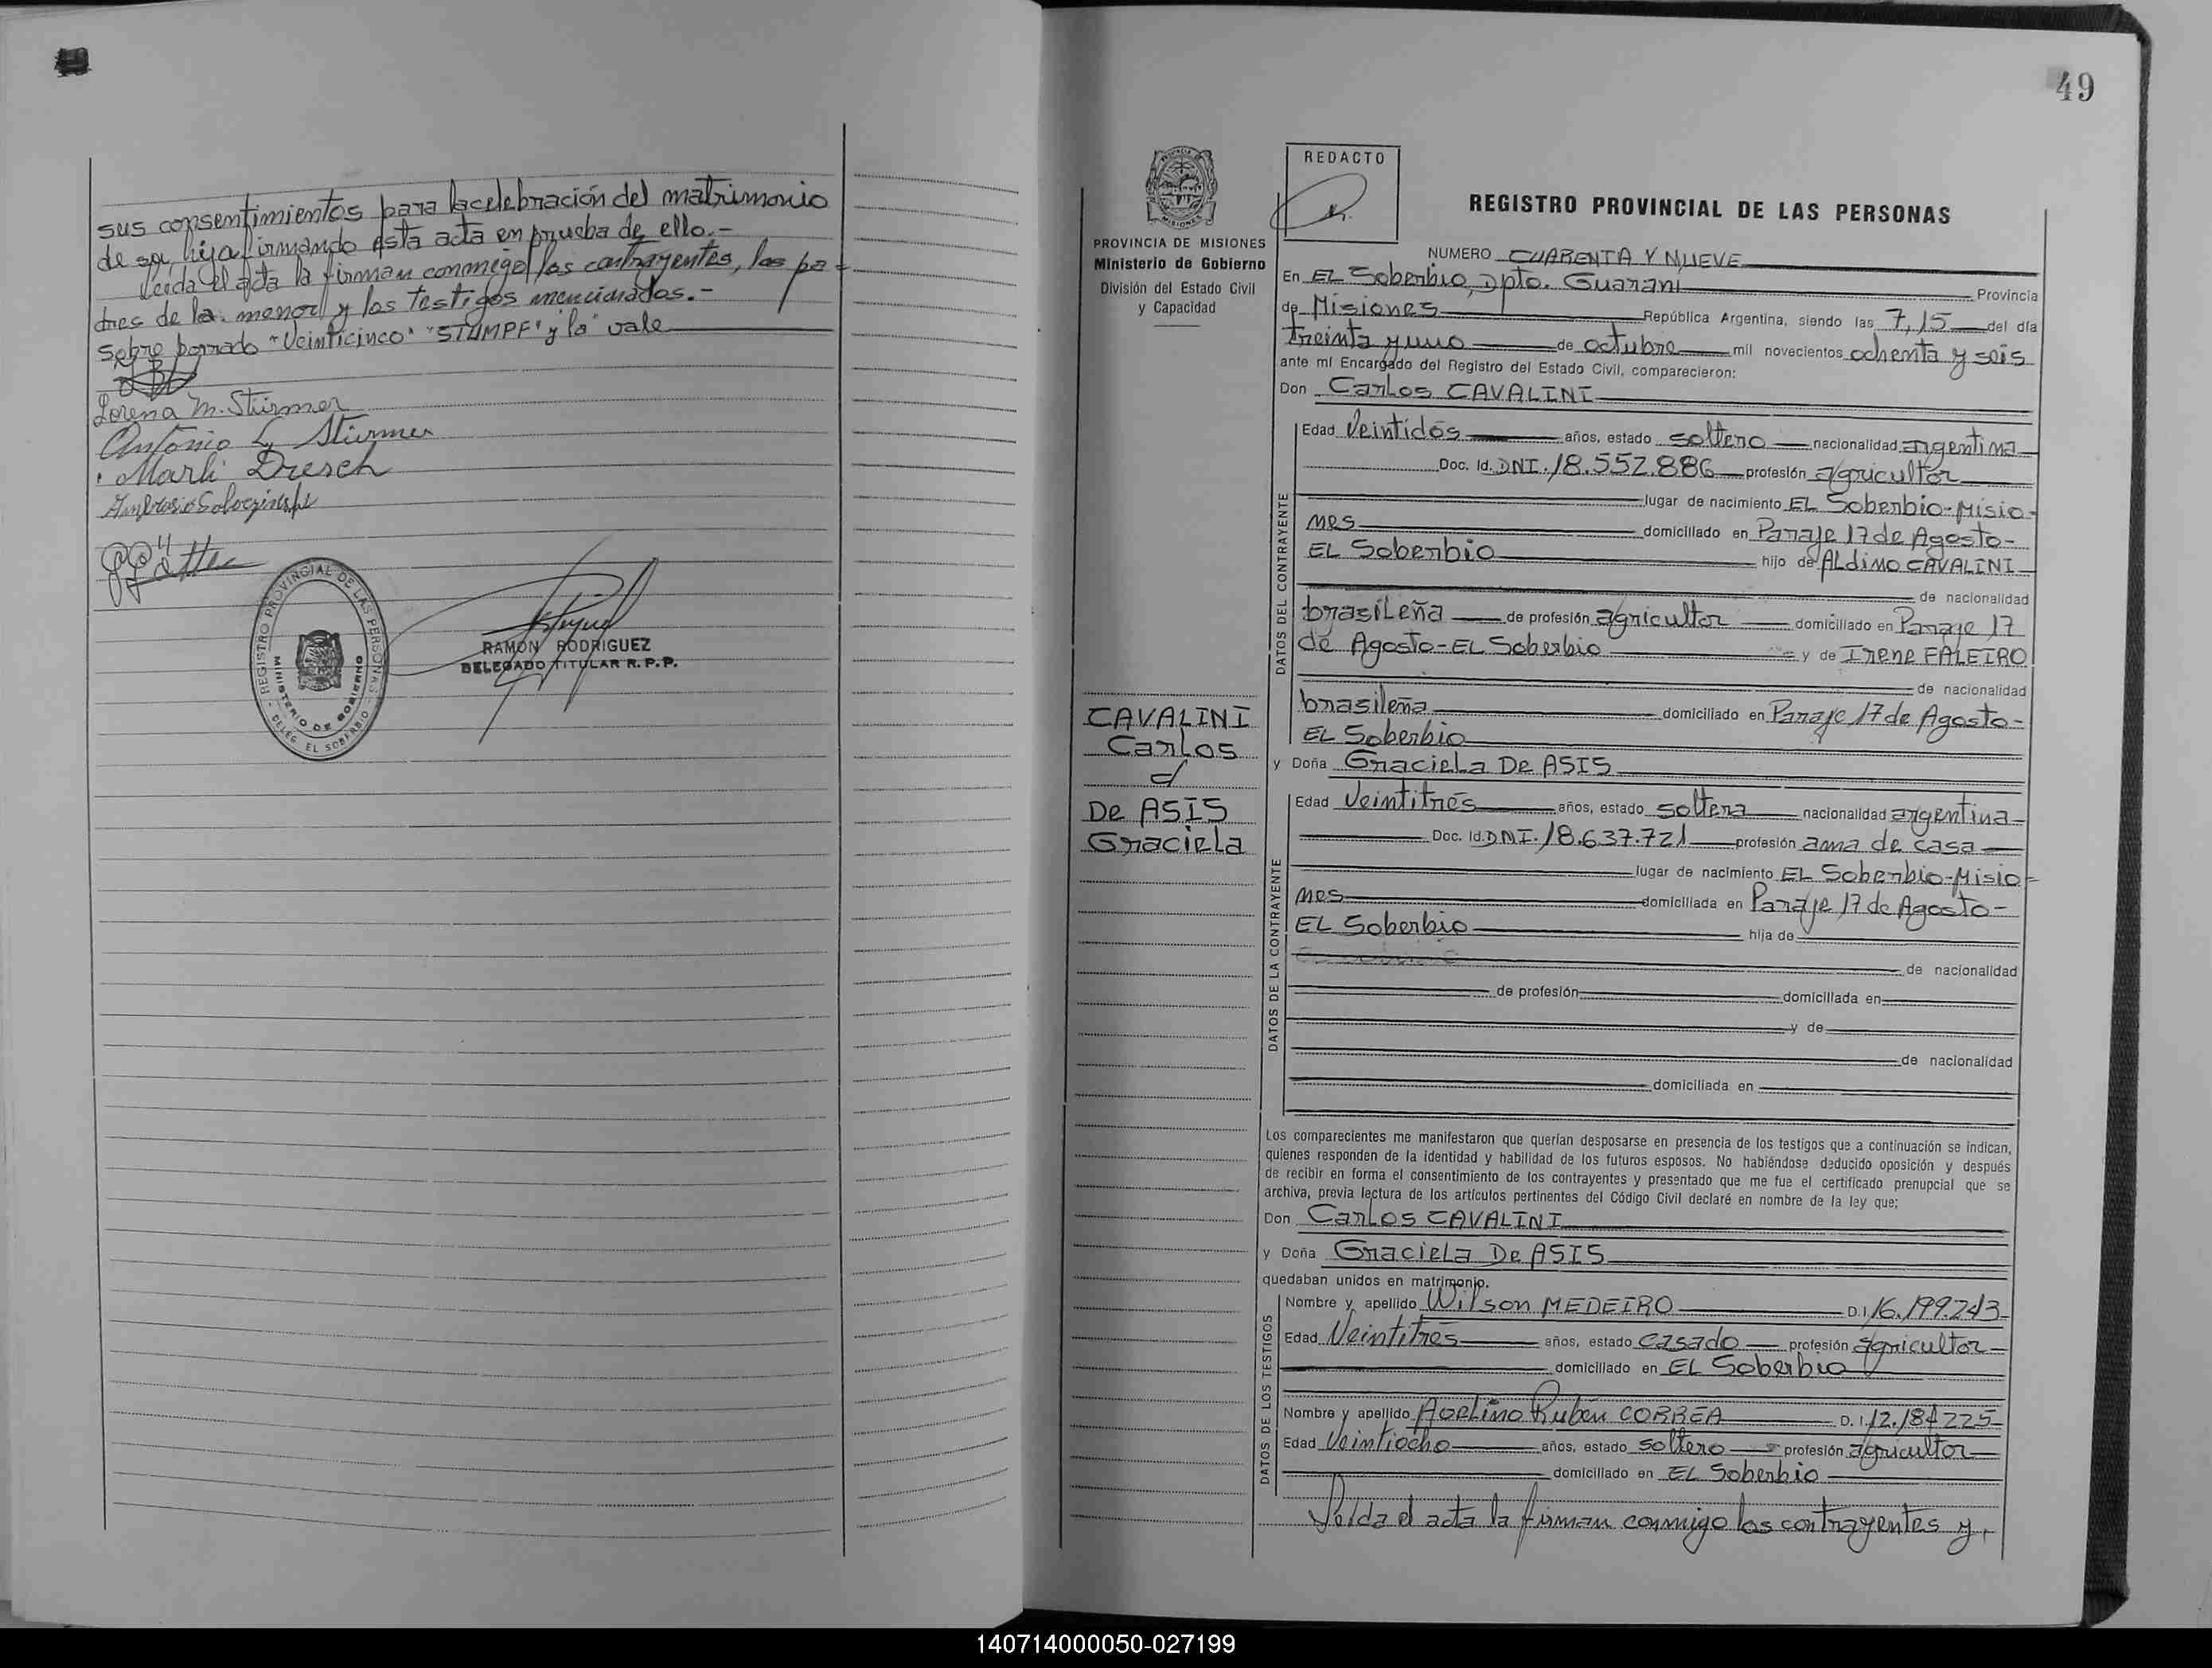 sus consentimientos para la celebración del matrimonio
de su hija firmando esta acta en prueba de ello.-
Leida el acta la firman conmigo los contrayentes, los pa-
dres de la menor y los testigos mencionados.-
Sobre borrado "Veinticinco" "STUMPF" y "la" vale
Lorena M. Stürmer
Antonio L. Stürmer
Marli Dresch
REGISTRO PROVINCIAL DE LAS PERSONAS
MINISTERIO DE GOBIERNO
DELEG. EL SOBERBIO
RAMON RODRIGUEZ
DELEGADO TITULAR R.P.P.
49
PROVINCIA DE MISIONES
Ministerio de Gobierno
División del Estado Civil
y Capacidad
REDACTO
REGISTRO PROVINCIAL DE LAS PERSONAS
NUMERO CUARENTA Y NUEVE
En EL Soberbio, Dpto. Guaraní Provincia
de Misiones República Argentina, siendo las 7,15 del día
treinta y uno de octubre mil novecientos ochenta y seis
ante mí Encargado del Registro del Estado Civil, comparecieron:
Don Carlos CAVALINI
DATOS DEL CONTRAYENTE
Edad Veintidós años, estado soltero nacionalidad argentina
Doc. Id. DNI. 18.552.886 profesión agricultor
lugar de nacimiento EL Soberbio-Misio-
nes domiciliado en Paraje 17 de Agosto-
EL Soberbio hijo de ALdino CAVALINI
de nacionalidad
brasileña de profesión agricultor domiciliado en Paraje 17
de Agosto-EL Soberbio y de Irene FALEIRO
de nacionalidad
brasileña domiciliado en Paraje 17 de Agosto-
EL Soberbio
CAVALINI
Carlos
c/
De ASIS
Graciela
y Doña Graciela De ASIS
DATOS DE LA CONTRAYENTE
Edad Veintitrés años, estado soltera nacionalidad argentina
Doc. Id. DNI. 18.637.721 profesión ama de casa
lugar de nacimiento EL Soberbio-Misio-
nes domiciliada en Paraje 17 de Agosto-
EL Soberbio hija de
de nacionalidad
de profesión domiciliada en
y de
de nacionalidad
domiciliada en
Los comparecientes me manifestaron que querían desposarse en presencia de los testigos que a continuación se indican,
quienes responden de la identidad y habilidad de los futuros esposos. No habiéndose deducido oposición y después
de recibir en forma el consentimiento de los contrayentes y presentado que me fue el certificado prenupcial que se
archiva, previa lectura de los artículos pertinentes del Código Civil declaré en nombre de la ley que;
Don Carlos CAVALINI
y Doña Graciela De ASIS
quedaban unidos en matrimonio.
DATOS DE LOS TESTIGOS
Nombre y apellido Wilson MEDEIRO D.I. 16.199.243
Edad Veintitrés años, estado casado profesión agricultor
domiciliado en EL Soberbio
Nombre y apellido Avelino Rubén CORREA D.I. 12.184225
Edad Veintiocho años, estado soltero profesión agricultor
domiciliado en EL Soberbio
Leida el acta la firman conmigo los contrayentes y
140714000050-027199